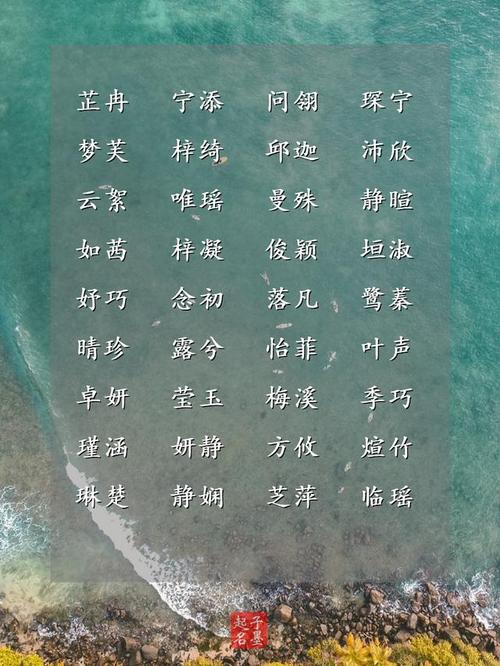 芷冉 宁添 问翎 琛宁
梦芙 梓绮 邱迦 沛欣
云絮 唯瑶 曼殊 静暄
如茜 梓凝 俊颖 垣淑
妤巧 念初 落凡 鹭蓁
晴珍 露兮 怡菲 叶声
卓妍 莹玉 梅溪 季巧
瑾涵 妍静 方攸 煊竹
琳楚 静娴 芝萍 临瑶
子墨
起名